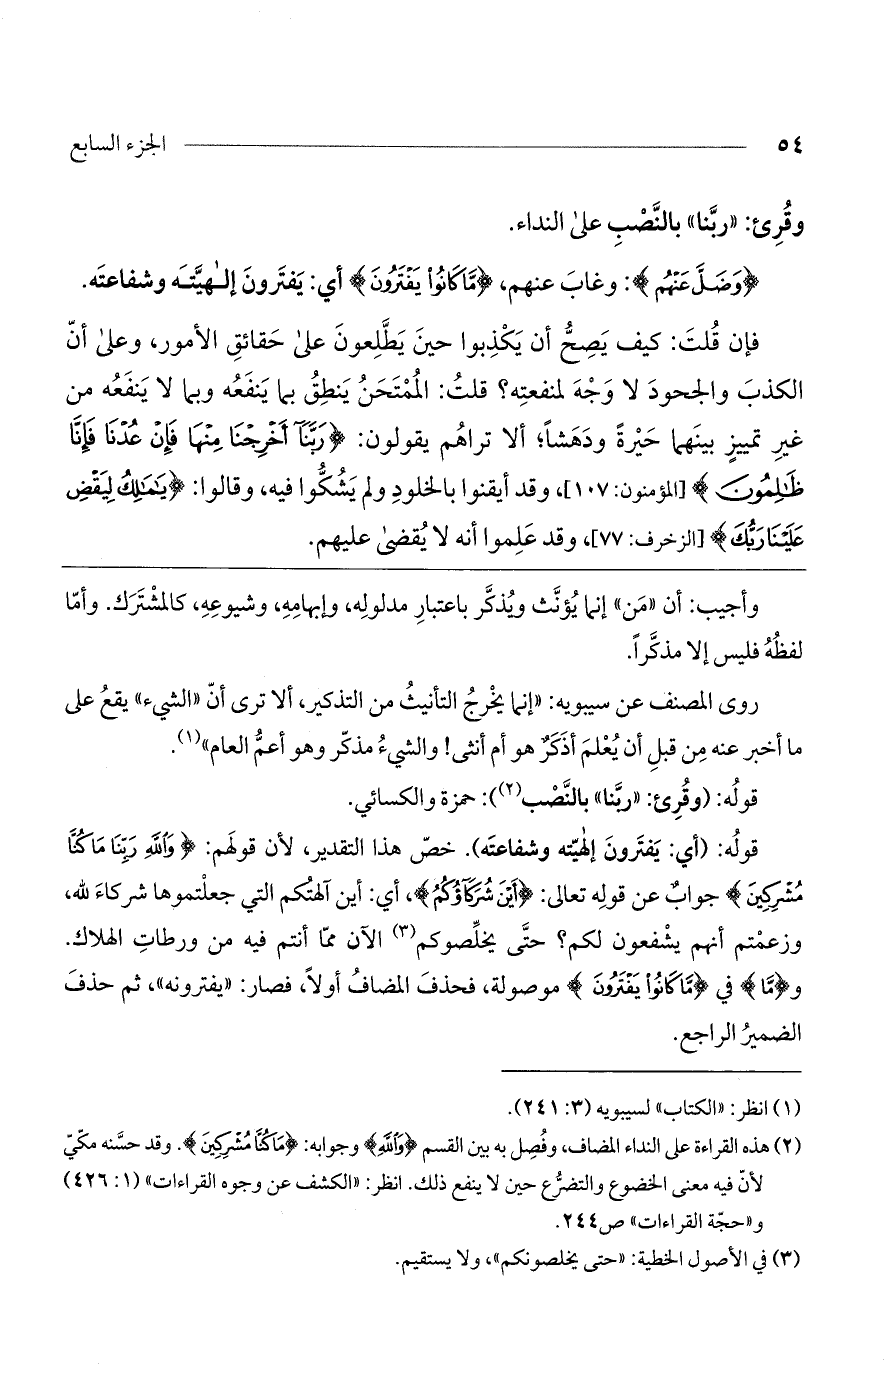 ٥٤ الجزء السابع
وقُرِئ: «ربَّنا» بالنَّصْبِ علىٰ النداء.
﴿وَضَلَّ عَنْهُم﴾: وغابَ عنهم، ﴿مَّا كَانُوا۟ يَفْتَرُونَ﴾ أي: يَفتَرونَ إلٰهيَّتَه وشفاعتَه.
فإن قُلتَ: كيف يَصِحُّ أن يَكْذِبوا حينَ يَطَّلِعونَ علىٰ حَقائقِ الأمور، وعلىٰ أنّ
الكذبَ والجحودَ لا وَجْهَ لمنفعتِه؟ قلتُ: المُمْتَحَنُ يَنطِقُ بما يَنفَعُه وبما لا يَنفَعُه من
غيرِ تمييزٍ بينَهما حَيْرةً ودَهَشاً؛ ألا تراهُم يقولون: ﴿رَبَّنَآ أَخْرِجْنَا مِنْهَا فَإِنْ عُدْنَا فَإِنَّا
ظَٰلِمُونَ﴾ [المؤمنون: ١٠٧]، وقد أيقنوا بالخلودِ ولم يَشُكُّوا فيه، وقالوا: ﴿يَٰمَٰلِكُ لِيَقْضِ
عَلَيْنَا رَبُّكَ﴾ [الزخرف: ٧٧]، وقد عَلِموا أنه لا يُقضىٰ عليهم.
وأجيب: أن «مَن» إنما يُؤنَّث ويُذكَّر باعتبارِ مدلولِه، وإبهامِهِ، وشيوعِهِ، كالمشْتَرَك. وأمّا
لفظُهُ فليس إلا مذكَّراً.
روى المصنف عن سيبويه: «إنما يخْرجُ التأنيثُ من التذكير، ألا ترى أنّ «الشيء» يقعُ على
ما أخبر عنه مِن قبلِ أن يُعْلمَ أذَكَرٌ هو أم أنثى! والشيءُ مذكّر وهو أعمُّ العام»(١).
قولُه: (وقُرِئ: «ربَّنا» بالنَّصْب(٢)): حمزة والكسائي.
قولُه: (أي: يَفتَرونَ إلٰهيّته وشفاعتَه). خصّ هذا التقدير، لأن قولَهم: ﴿وَٱللَّهِ رَبِّنَا مَا كُنَّا
مُشْرِكِينَ﴾ جوابٌ عن قولِه تعالى: ﴿أَيْنَ شُرَكَآؤُكُمُ﴾، أي: أين آلهتُكم التي جعلْتموها شركاءَ لله،
وزعمْتم أنهم يشْفعون لكم؟ حتَّى يخلِّصوكم(٣) الآن ممّا أنتم فيه من ورطاتِ الهلاك.
و﴿مَّا﴾ في ﴿مَّا كَانُوا۟ يَفْتَرُونَ﴾ موصولة، فحذفَ المضافُ أولاً، فصار: «يفترونه»، ثم حذفَ
الضميرُ الراجع.
(١) انظر: «الكتاب» لسيبويه (٣: ٢٤١).
(٢) هذه القراءة على النداء المضاف، وفُصِل به بين القسم ﴿وَٱللَّهِ﴾ وجوابه: ﴿مَا كُنَّا مُشْرِكِينَ﴾. وقد حسَّنه مكّيّ
لأنّ فيه معنى الخضوع والتضرُّع حين لا ينفع ذلك. انظر: «الكشف عن وجوه القراءات» (١: ٤٢٦)
و«حجّة القراءات» ص٢٤٤.
(٣) في الأصول الخطية: «حتى يخلصونكم»، ولا يستقيم.